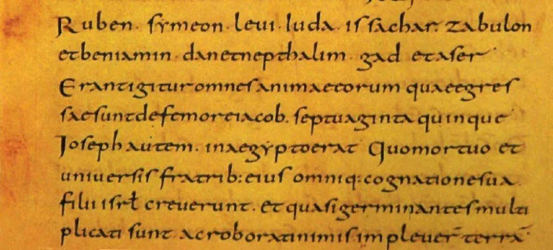 Ruben · sẏmeon · levi · Iuda · issachar · zabulon
et beniamin · dan et nepthalim · gad et aser
Erant igitur omnes animae eorum quae egres
sae sunt de femore iacob · septuaginta quinque
Ioseph autem · in aegẏpto erat Quo mortuo et
universis fratrib: eius omniq: cognatione sua
filii isrł creverunt · et quasi germinantes multi
plicati sunt · ac roborati nimis implever̄ terrā